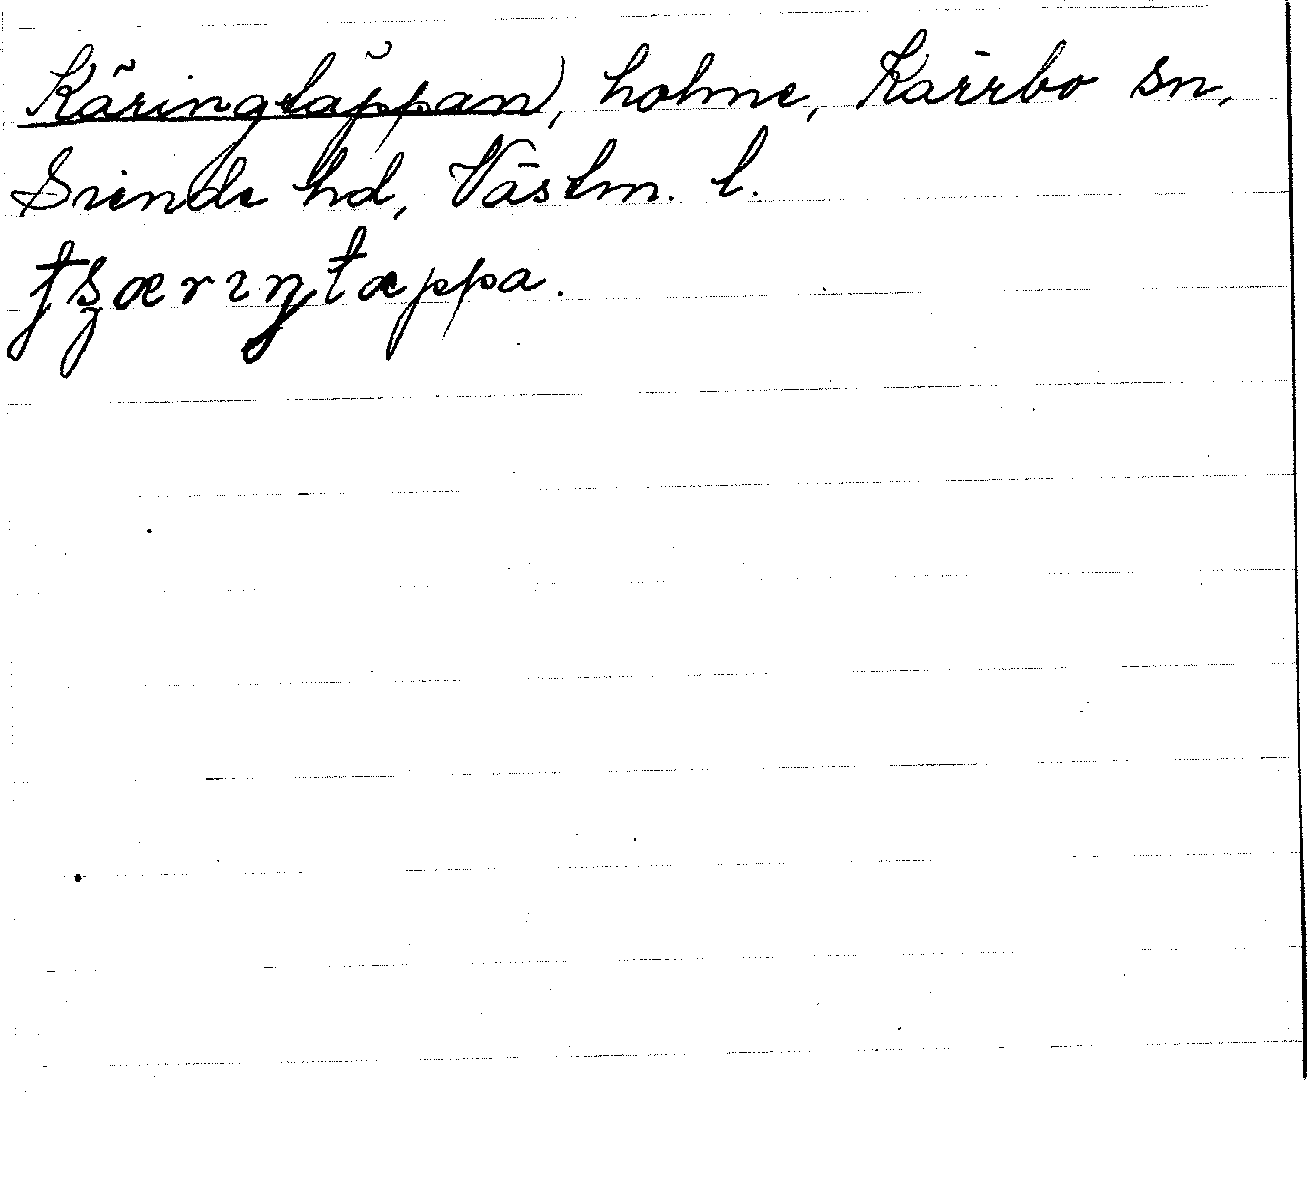 Käringtäppan), holme, Kärrbo sn,
Siende hd, Västm. l.
tʂæriŋtæppa.